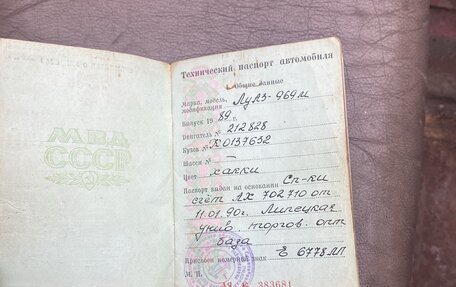 МВД
СССР
Технический паспорт автомобиля
I. Общие данные
Марка, модель, модификация ЛуАЗ-969М
Выпуск 19 89 г.
Двигатель № 212828
Кузов № К0137652
Шасси № —
Цвет хакки
Паспорт выдан на основании Сп-ки
счёт АХ 702710 от
11.01.90г. Липецкая
унив. торгов. опт
база
Присвоен номерной знак Е 6778 ЛП
М. П.
383681